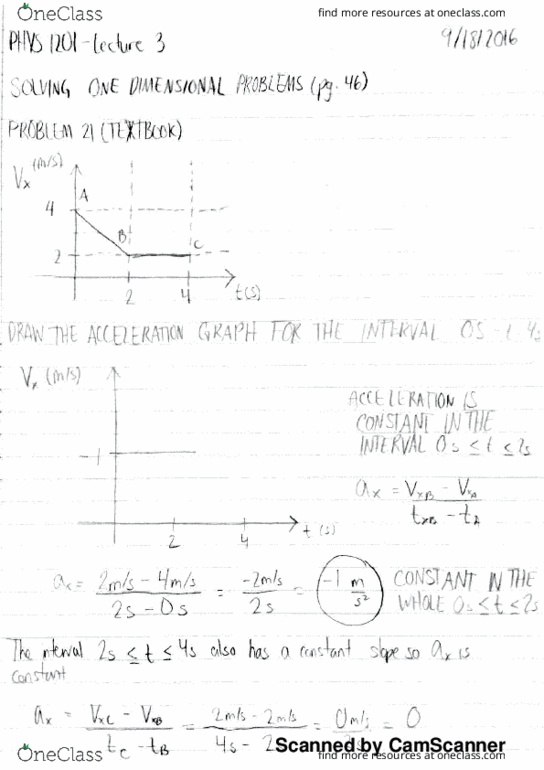 OneClass find more resources at oneclass.com
PHYS 1201 - Lecture 3 9/18/2016
SOLVING ONE DIMENSIONAL PROBLEMS (pg. 46)
PROBLEM 21 (TEXTBOOK)
Vx (m/s)
A
4
B
C
2
2 4 t(s)
DRAW THE ACCELERATION GRAPH FOR THE INTERVAL 0S - t 4s
Vx (m/s)
ACCELERATION IS
CONSTANT IN THE
INTERVAL 0s ≤ t ≤ 2s
-1
ax = VxB - VxA
txB - tA
t(s)
2 4
ax = 2m/s - 4m/s = -2m/s = -1 m CONSTANT IN THE
2s - 0s 2s s² WHOLE 0s ≤ t ≤ 2s
The interval 2s ≤ t ≤ 4s also has a constant slope so ax is
constant
ax = VxC - VxB = 2m/s - 2m/s = 0m/s = 0
tC - tB 4s - 2
Scanned by CamScanner
OneClass find more resources at oneclass.com